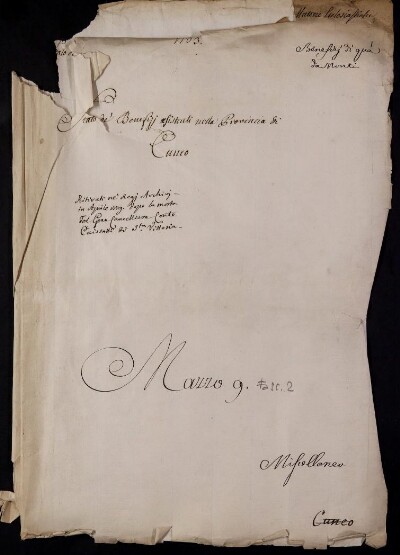 Materie Ecclesiastiche
1753.
Benefizj di quà
da Monti
Stato de' Benefizj esistenti nella Provincia di
Cuneo
Ritirati ne' Regj Archivj
in Aprile 1789. dopo la morte
del Gran Cancelliere Conte
Caissotti di S.ta Vittoria
Mazzo 9. Fasc. 2
Miscellanea
Cuneo